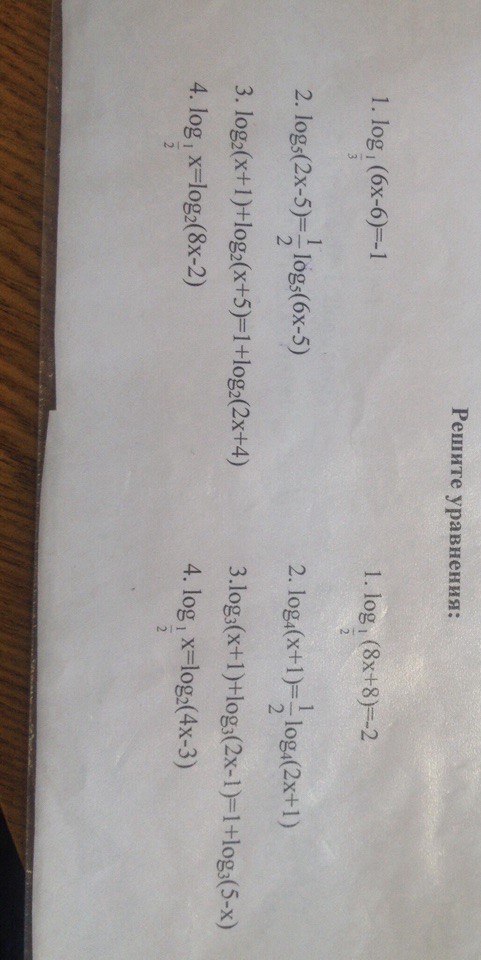 Решите уравнения:
1. log_{1/3}(6x-6)=-1
2. log₅(2x-5)=1/2 log₅(6x-5)
3. log₂(x+1)+log₂(x+5)=1+log₂(2x+4)
4. log_{1/2} x=log₂(8x-2)
1. log_{1/2}(8x+8)=-2
2. log₄(x+1)=1/2 log₄(2x+1)
3.log₃(x+1)+log₃(2x-1)=1+log₃(5-x)
4. log_{1/2} x=log₂(4x-3)